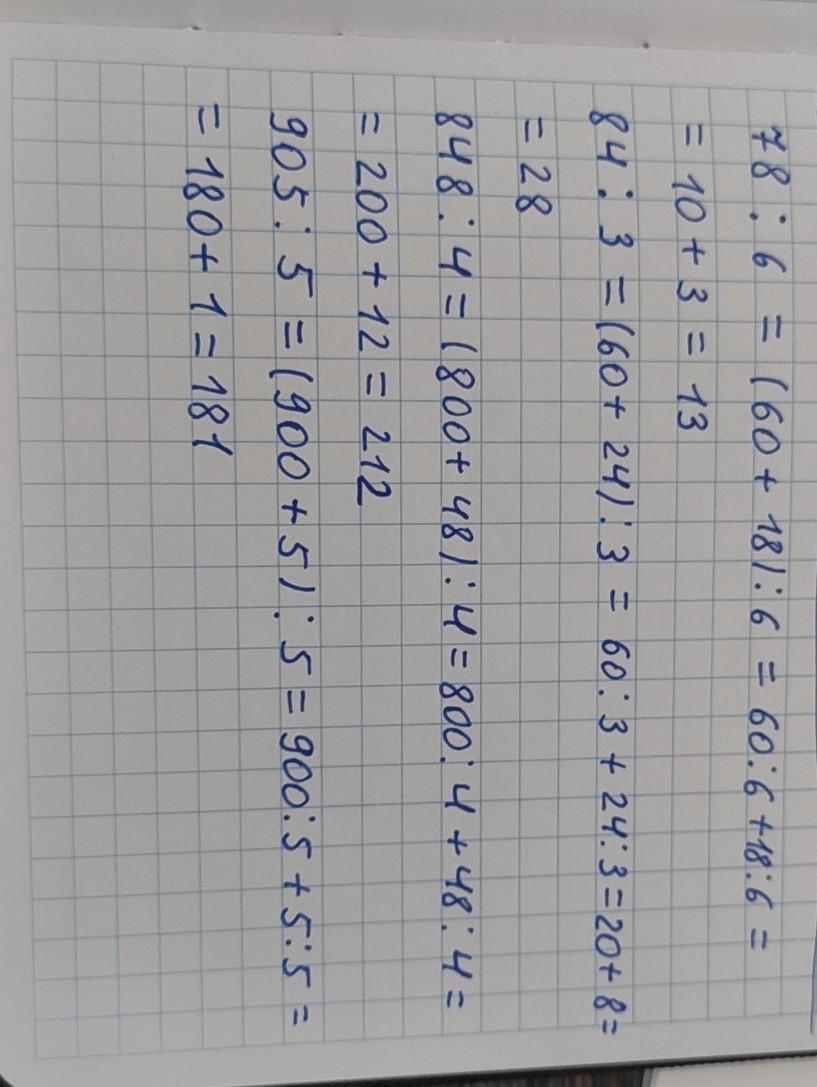 78 : 6 = (60 + 18) : 6 = 60 : 6 + 18 : 6 =
= 10 + 3 = 13
84 : 3 = (60 + 24) : 3 = 60 : 3 + 24 : 3 = 20 + 8 =
= 28
848 : 4 = (800 + 48) : 4 = 800 : 4 + 48 : 4 =
= 200 + 12 = 212
905 : 5 = (900 + 5) : 5 = 900 : 5 + 5 : 5 =
= 180 + 1 = 181